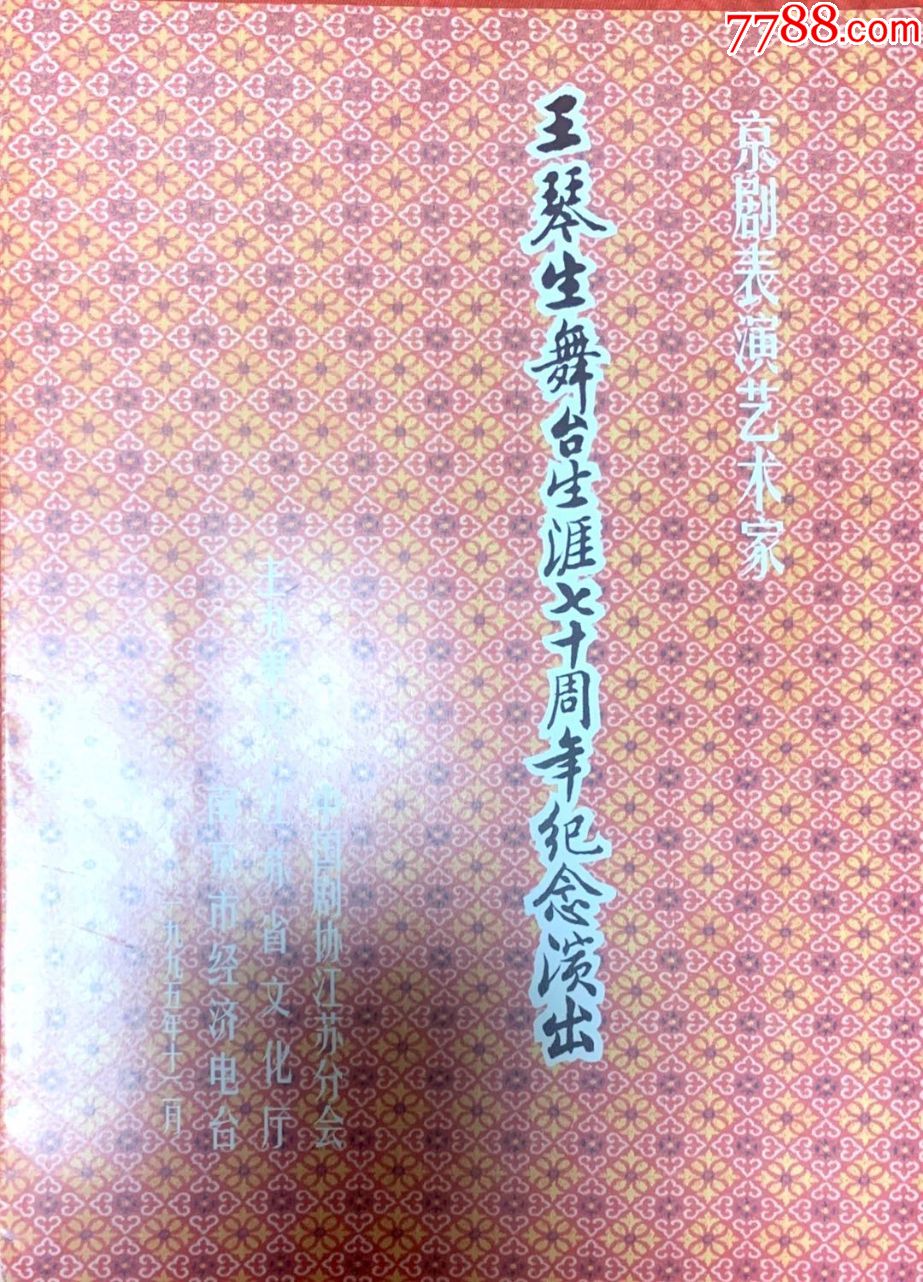 7788.com
京剧表演艺术家
王琴生舞台生涯七十周年纪念演出
中国剧协江苏分会
主办单位 江苏省文化厅
南京市经济电台
一九九五年十二月